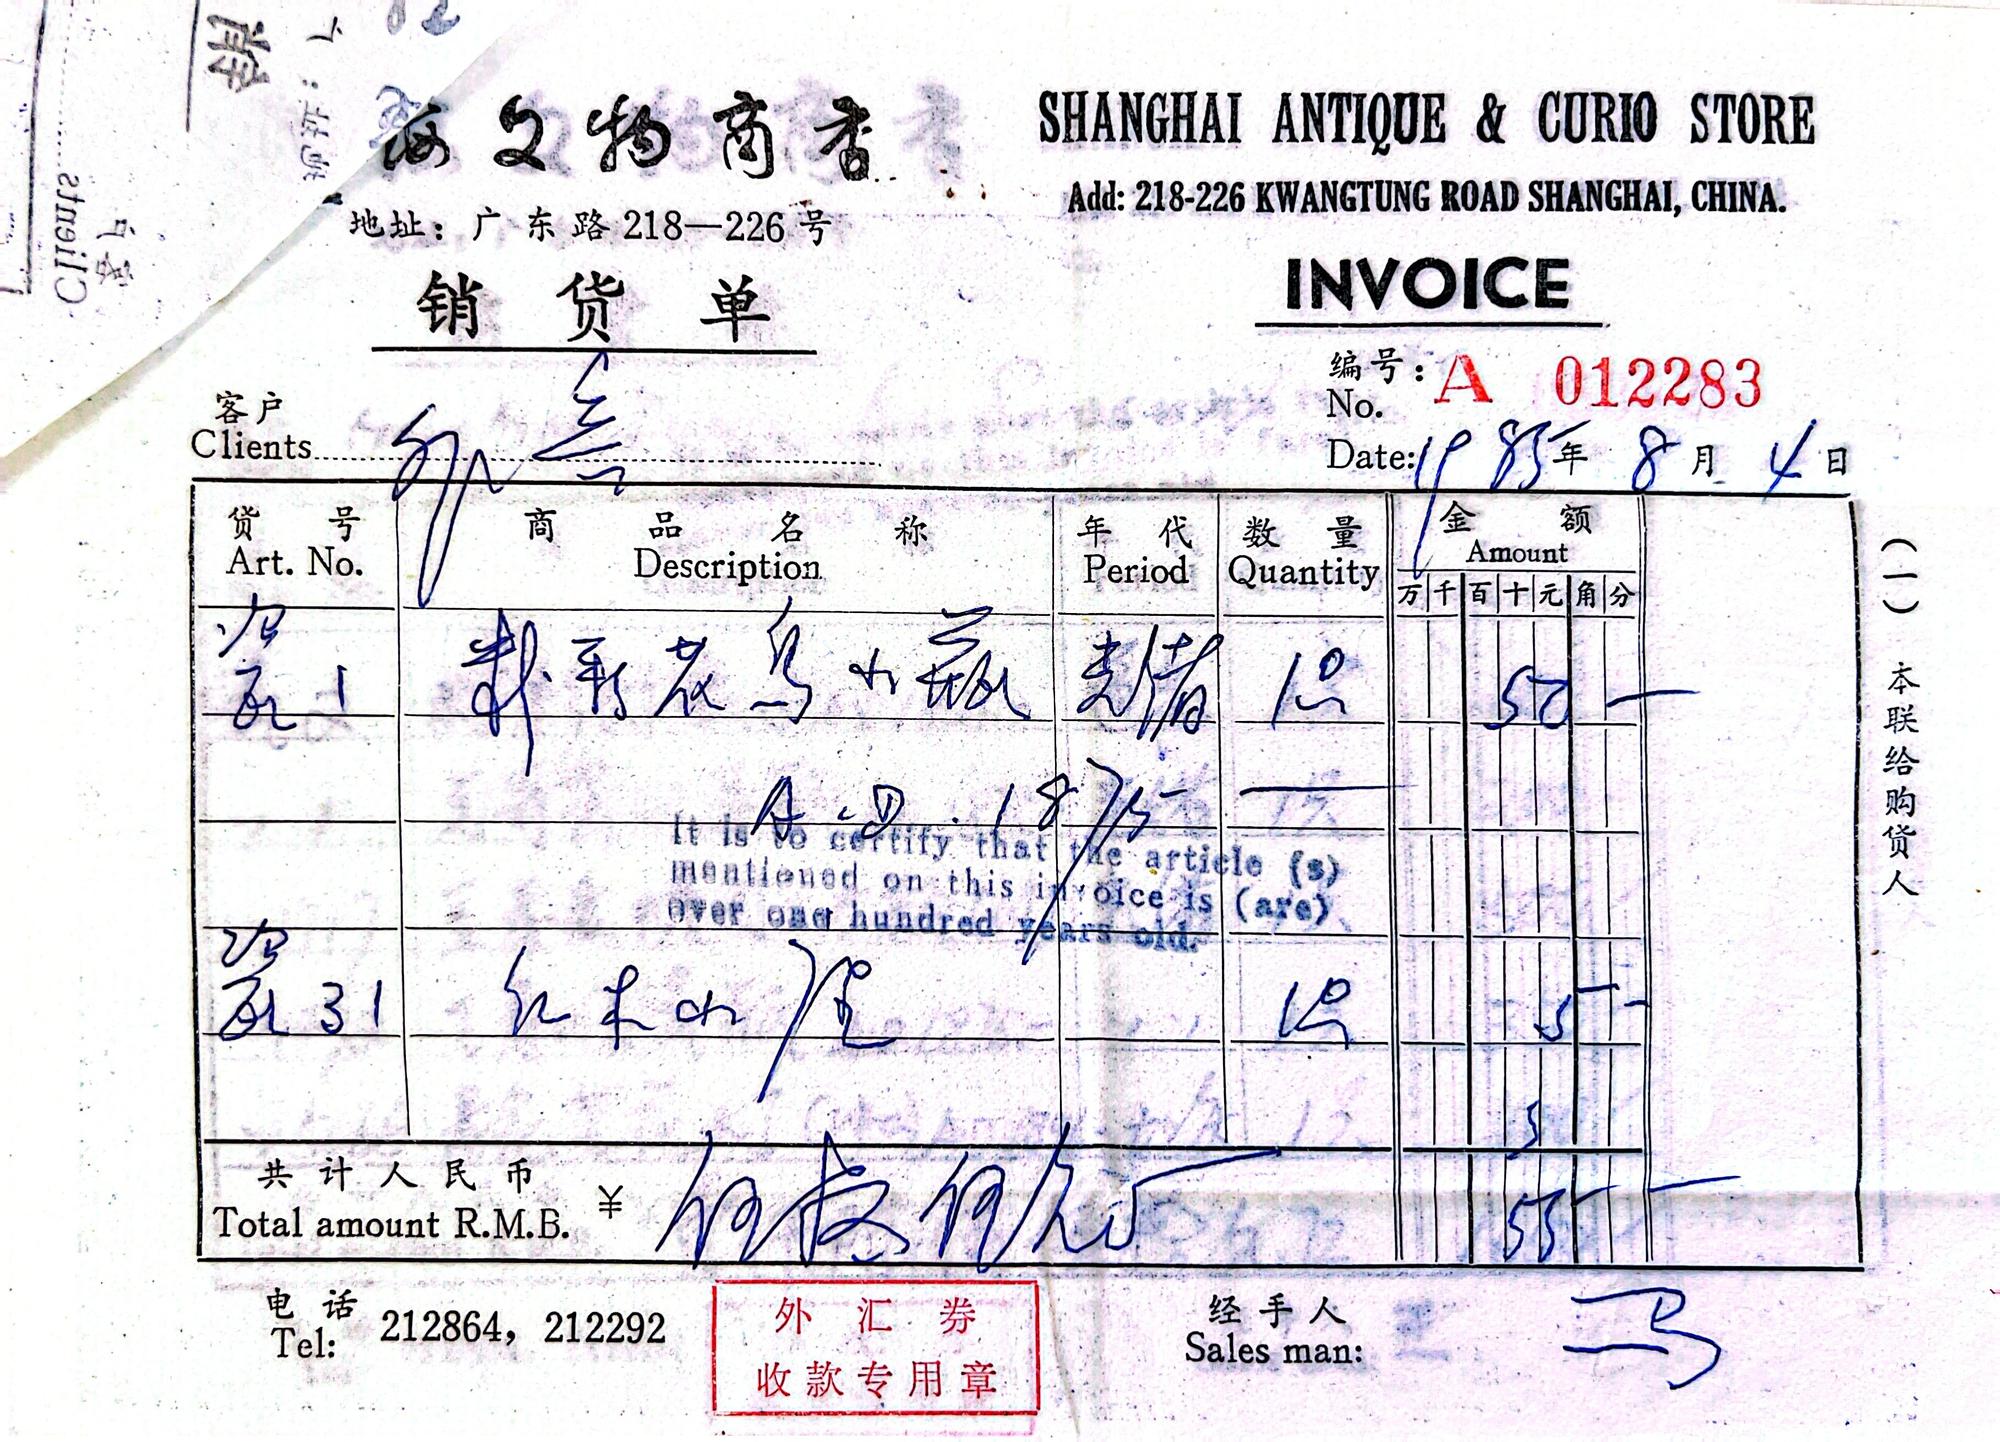 海文物商店
SHANGHAI ANTIQUE & CURIO STORE
地址：广东路218—226号
Add: 218-226 KWANGTUNG ROAD SHANGHAI, CHINA.
销货单
INVOICE
编号：
No. A 012283
客户
Clients 外宾
Date: 1985年8月4日
货号 商品名称 年代 数量 金额
Art. No. Description Period Quantity Amount
万 千 百 十 元 角 分
瓷 1 粉彩花鸟小瓶 光绪 1只 50 —
A.D. 1875 —
It is to certify that the article (s)
mentioned on this invoice is (are)
over one hundred years old.
瓷 31 红木小座 1只 5 —
共计人民币
Total amount R.M.B. ¥ 伍拾伍元 55 —
电话
Tel: 212864, 212292
外汇券
收款专用章
经手人
Sales man: 马
(一) 本联给购货人
Clients
客户
地址：广